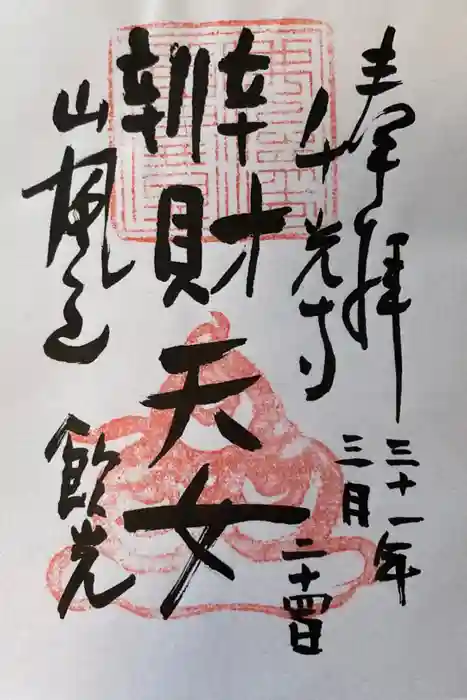 奉拝
三十一年
三月
二十四日
光寺
辨財天女
山風
飲光